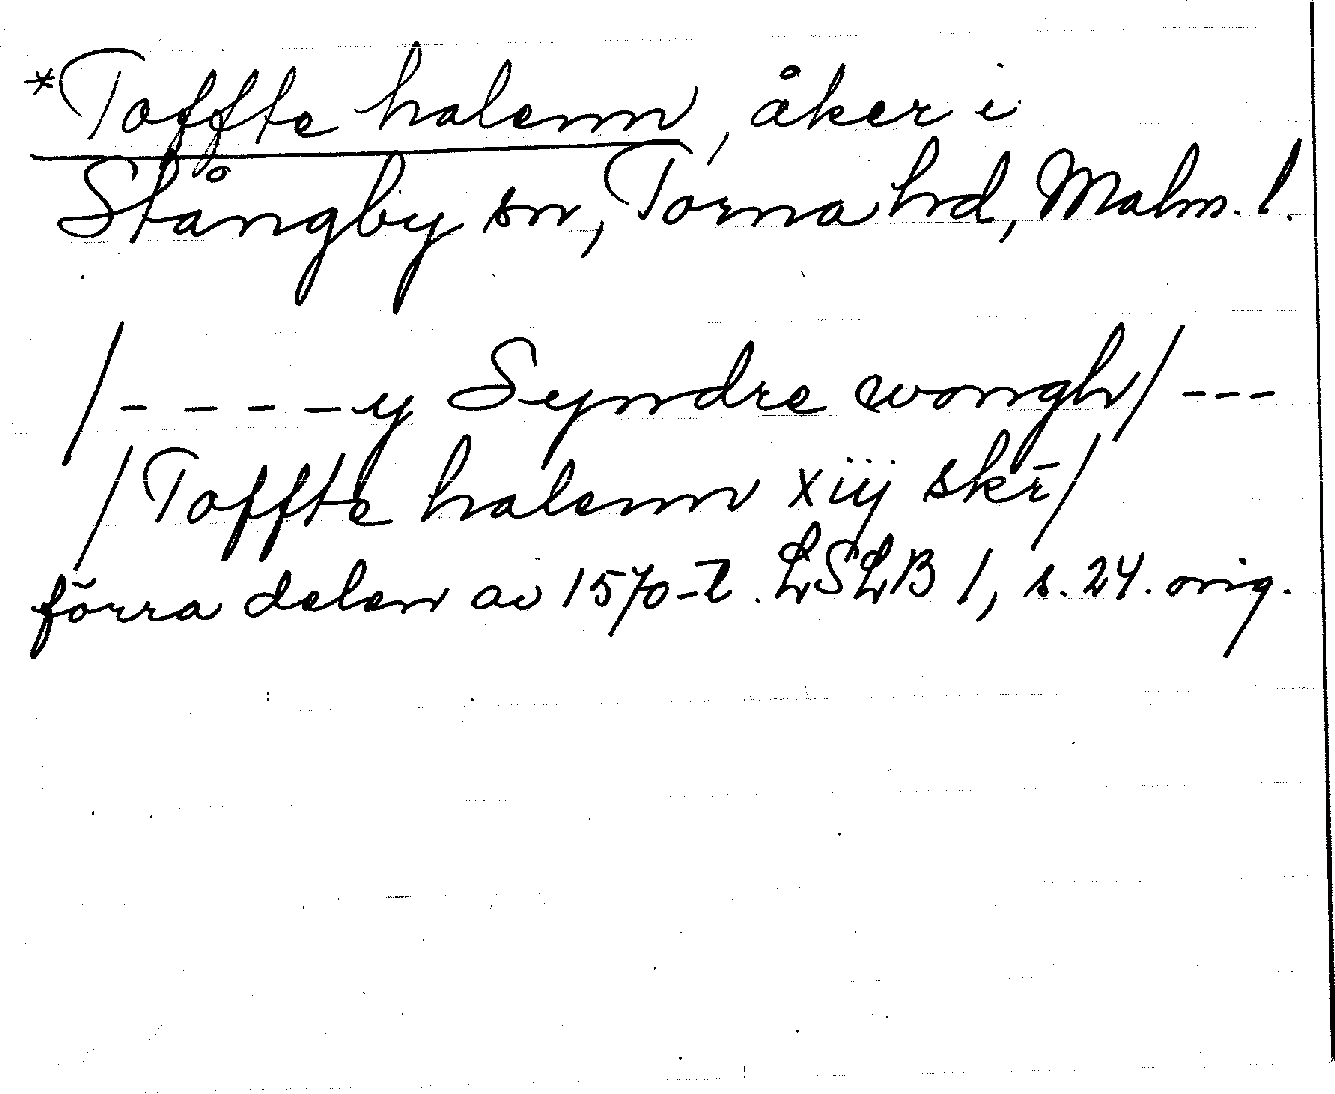 *Toffte halenn, åker i
Stångby sn, Torna hd, Malm. l.
/ - - - - y Syndre wongh / - - -
/ Toffte halenn xiij skr̄ /
förra delen av 1570-t. LSLB 1, s. 24. orig.